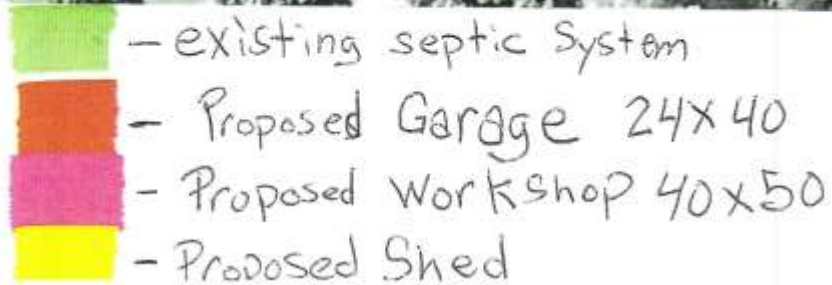 - existing septic System
- Proposed Garage 24x40
- Proposed Workshop 40x50
- Proposed Shed